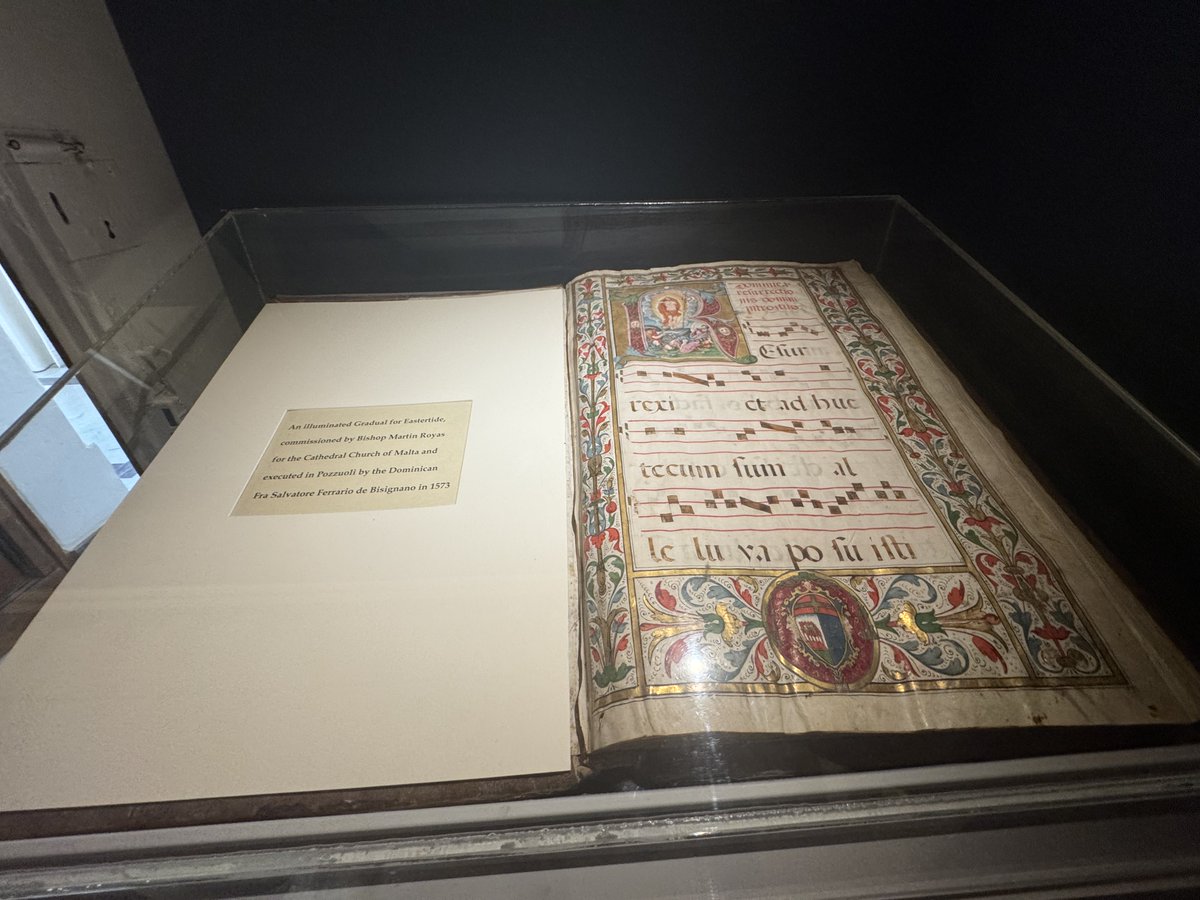 An illuminated Gradual for Eastertide,
commissioned by Bishop Martin Royas
for the Cathedral Church of Malta and
executed in Pozzuoli by the Dominican
Fra Salvatore Ferrario de Bisignano in 1573
Dominica
resurrectio
nis Domini
R Esur
rexi et ad huc
tecum sum al
le lu ya po su isti